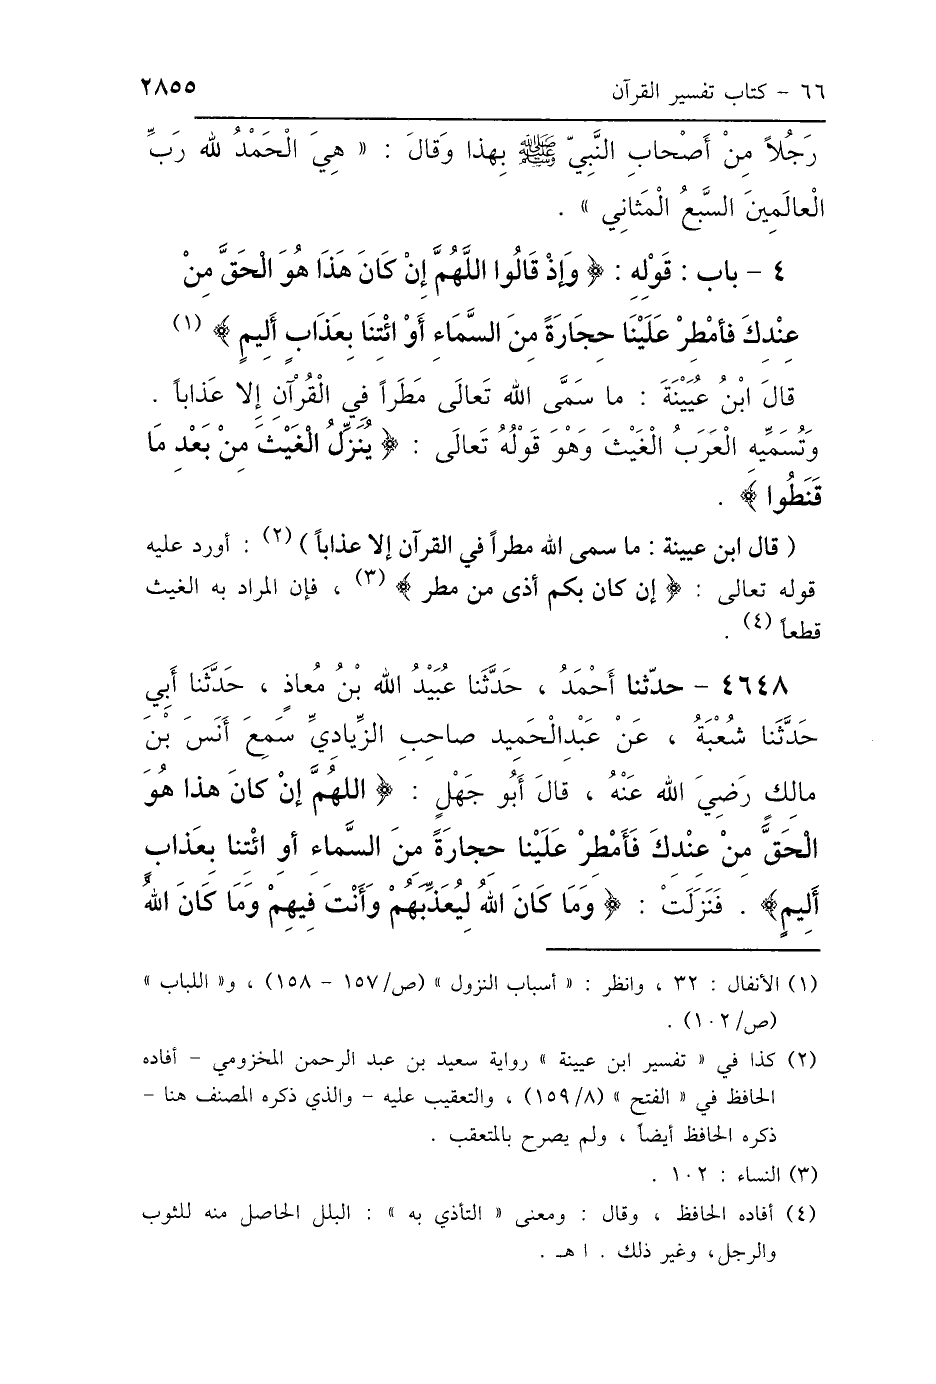 ٦٦ - كتاب تفسير القرآن ٢٨٥٥
رَجُلاً مِنْ أَصْحابِ النَّبِيِّ ﷺ بِهذا وَقَالَ : « هِيَ الْحَمْدُ لله رَبِّ
الْعالَمِينَ السَّبْعُ الْمَثانِي » .
٤ - باب : قَوْلِهِ : ﴿ وَإِذْ قَالُوا اللَّهُمَّ إِنْ كَانَ هَذَا هُوَ الْحَقَّ مِنْ
عِنْدِكَ فَأَمْطِرْ عَلَيْنَا حِجَارَةً مِنَ السَّمَاءِ أَوْ ائْتِنَا بِعَذَابٍ أَلِيمٍ ﴾ (١)
قالَ ابْنُ عُيَيْنَةَ : ما سَمَّى الله تَعالَى مَطَراً فِي الْقُرْآنِ إلا عَذاباً .
وَتُسَمِّيهِ الْعَرَبُ الْغَيْثَ وَهْوَ قَوْلُهُ تَعالَى : ﴿ يُنَزِّلُ الْغَيْثَ مِنْ بَعْدِ مَا
قَنَطُوا ﴾ .
( قال ابن عيينة : ما سمى الله مطراً في القرآن إلا عذاباً ) (٢) : أورد عليه
قوله تعالى : ﴿ إن كان بكم أذى من مطر ﴾ (٣) ، فإن المراد به الغيث
قطعاً (٤) .
٤٦٤٨ - حدّثنا أَحْمَدُ ، حَدَّثَنا عُبَيْدُ الله بْنُ مُعاذٍ ، حَدَّثَنا أَبِي
حَدَّثَنا شُعْبَةُ ، عَنْ عَبْدِالْحَمِيدِ صاحِبِ الزِّيادِيِّ سَمِعَ أَنَسَ بْنَ
مالِكٍ رَضِيَ الله عَنْهُ ، قالَ أَبُو جَهْلٍ : ﴿ اللهُمَّ إنْ كانَ هذا هُوَ
الْحَقَّ مِنْ عِنْدِكَ فَأَمْطِرْ عَلَيْنا حِجارَةً مِنَ السَّماءِ أو ائْتِنا بِعَذابٍ
أَلِيمٍ﴾ . فَنَزَلَتْ : ﴿ وَمَا كَانَ اللهُ لِيُعَذِّبَهُمْ وَأَنْتَ فِيهِمْ وَمَا كَانَ اللهُ
(١) الأنفال : ٣٢ ، وانظر : « أسباب النزول » (ص/١٥٧ - ١٥٨) ، و« اللباب »
(ص/١٠٢) .
(٢) كذا في « تفسير ابن عيينة » رواية سعيد بن عبد الرحمن المخزومي - أفاده
الحافظ في « الفتح » (١٥٩/٨) ، والتعقيب عليه - والذي ذكره المصنف هنا -
ذكره الحافظ أيضاً ، ولم يصرح بالمتعقب .
(٣) النساء : ١٠٢ .
(٤) أفاده الحافظ ، وقال : ومعنى « التأذي به » : البلل الحاصل منه للثوب
والرجل، وغير ذلك . ا هـ .